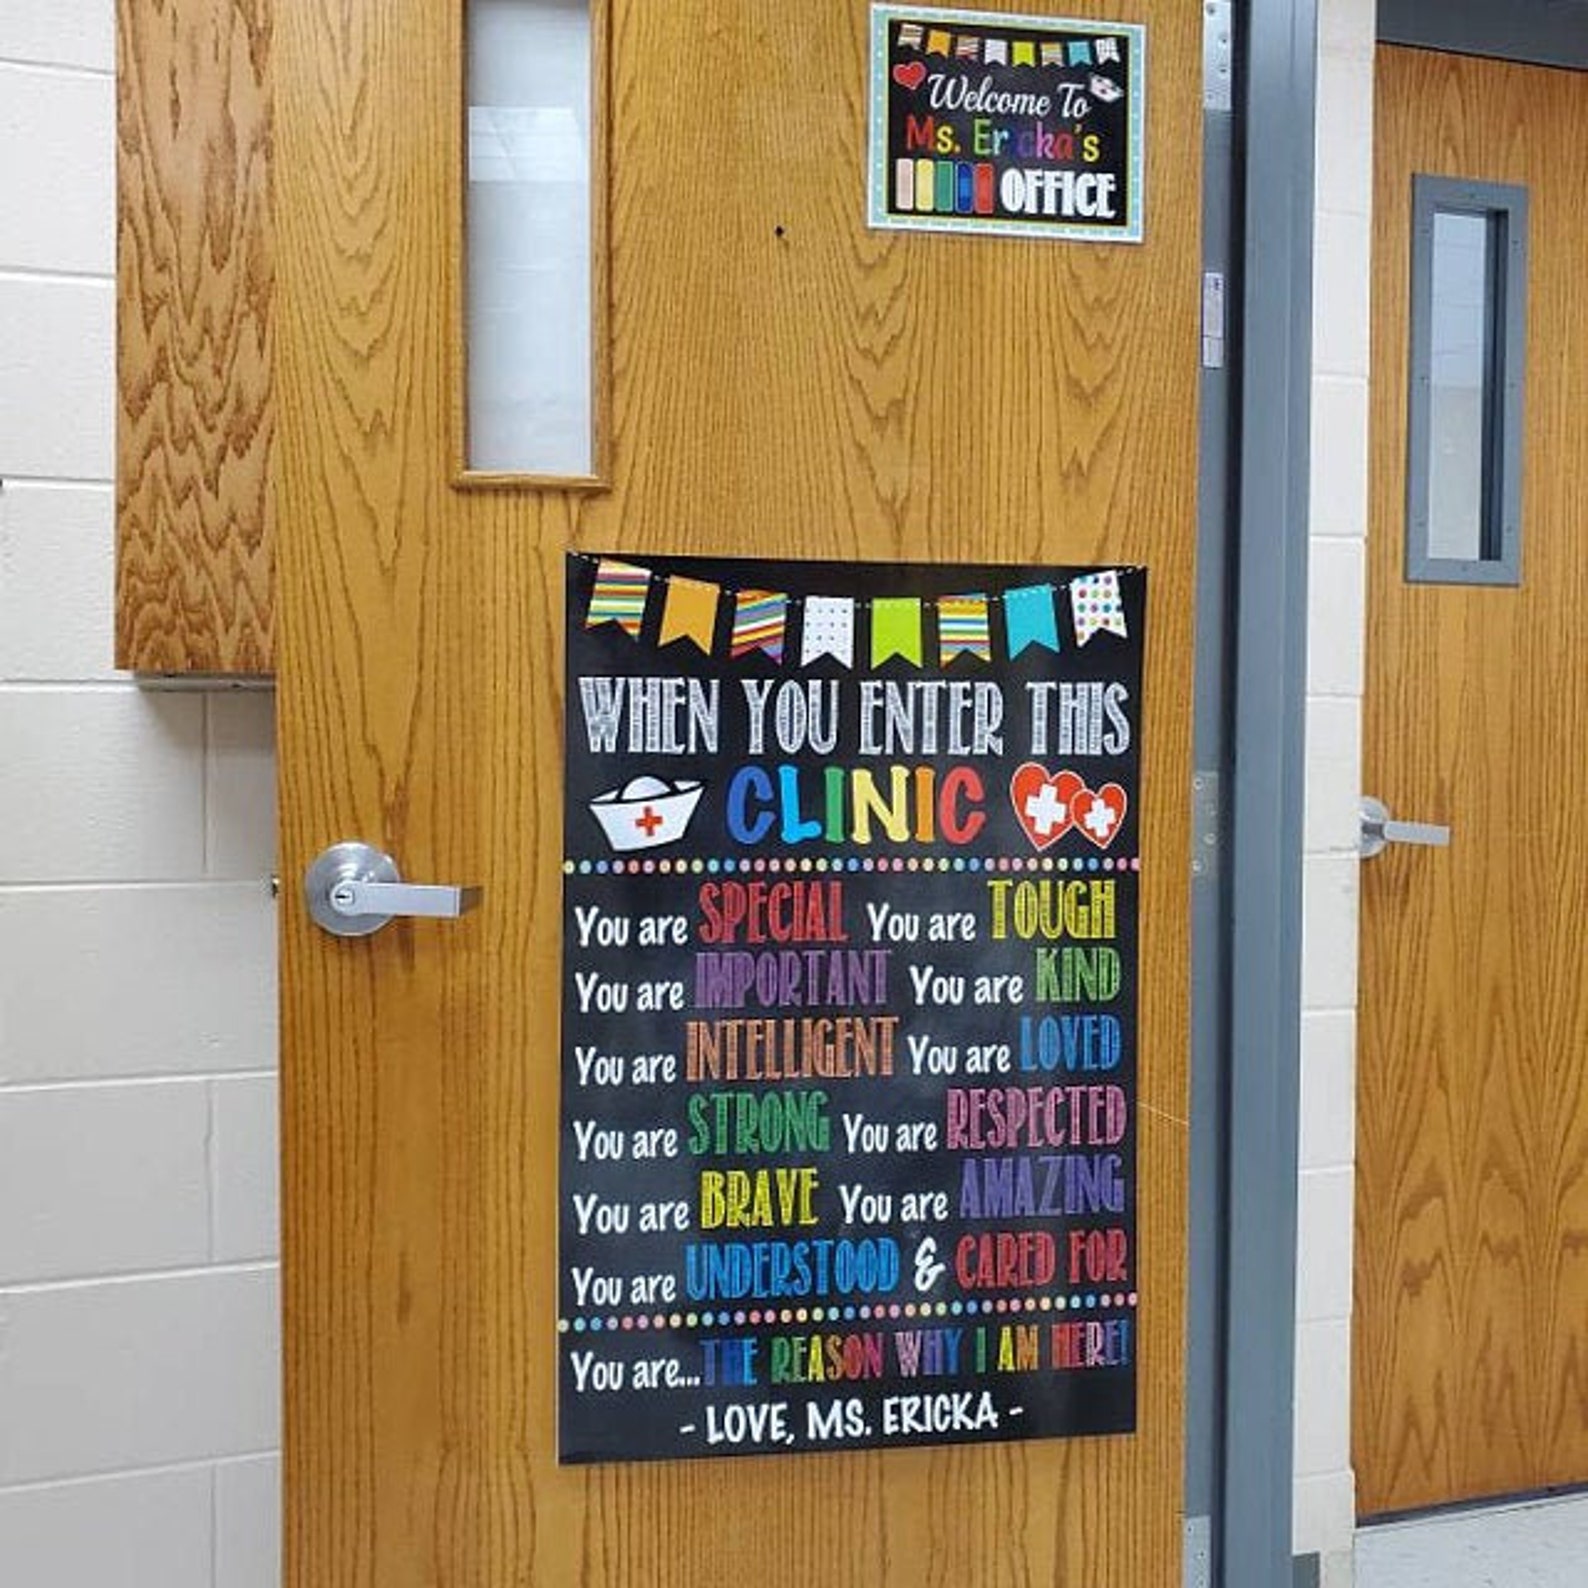 Welcome To
Ms. Ericka's
OFFICE
WHEN YOU ENTER THIS
CLINIC
You are SPECIAL You are TOUGH
You are IMPORTANT You are KIND
You are INTELLIGENT You are LOVED
You are STRONG You are RESPECTED
You are BRAVE You are AMAZING
You are UNDERSTOOD & CARED FOR
You are...THE REASON WHY I AM HERE!
- LOVE, MS. ERICKA -